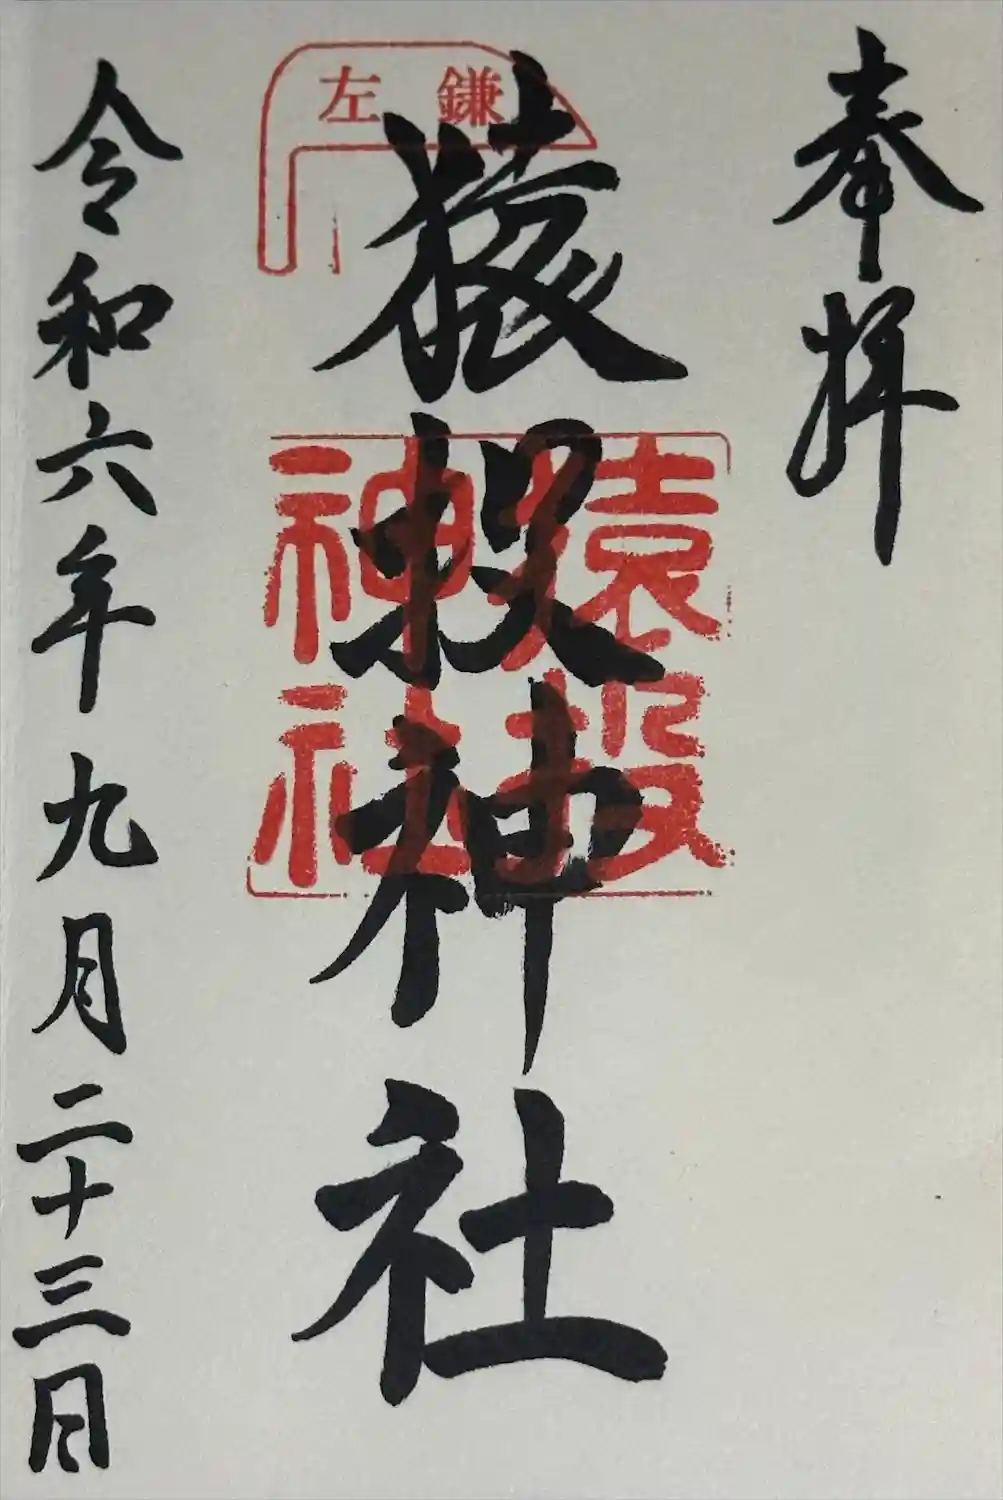 奉拝
猿投神社
左鎌
猿投
神社
令和六年九月二十三日